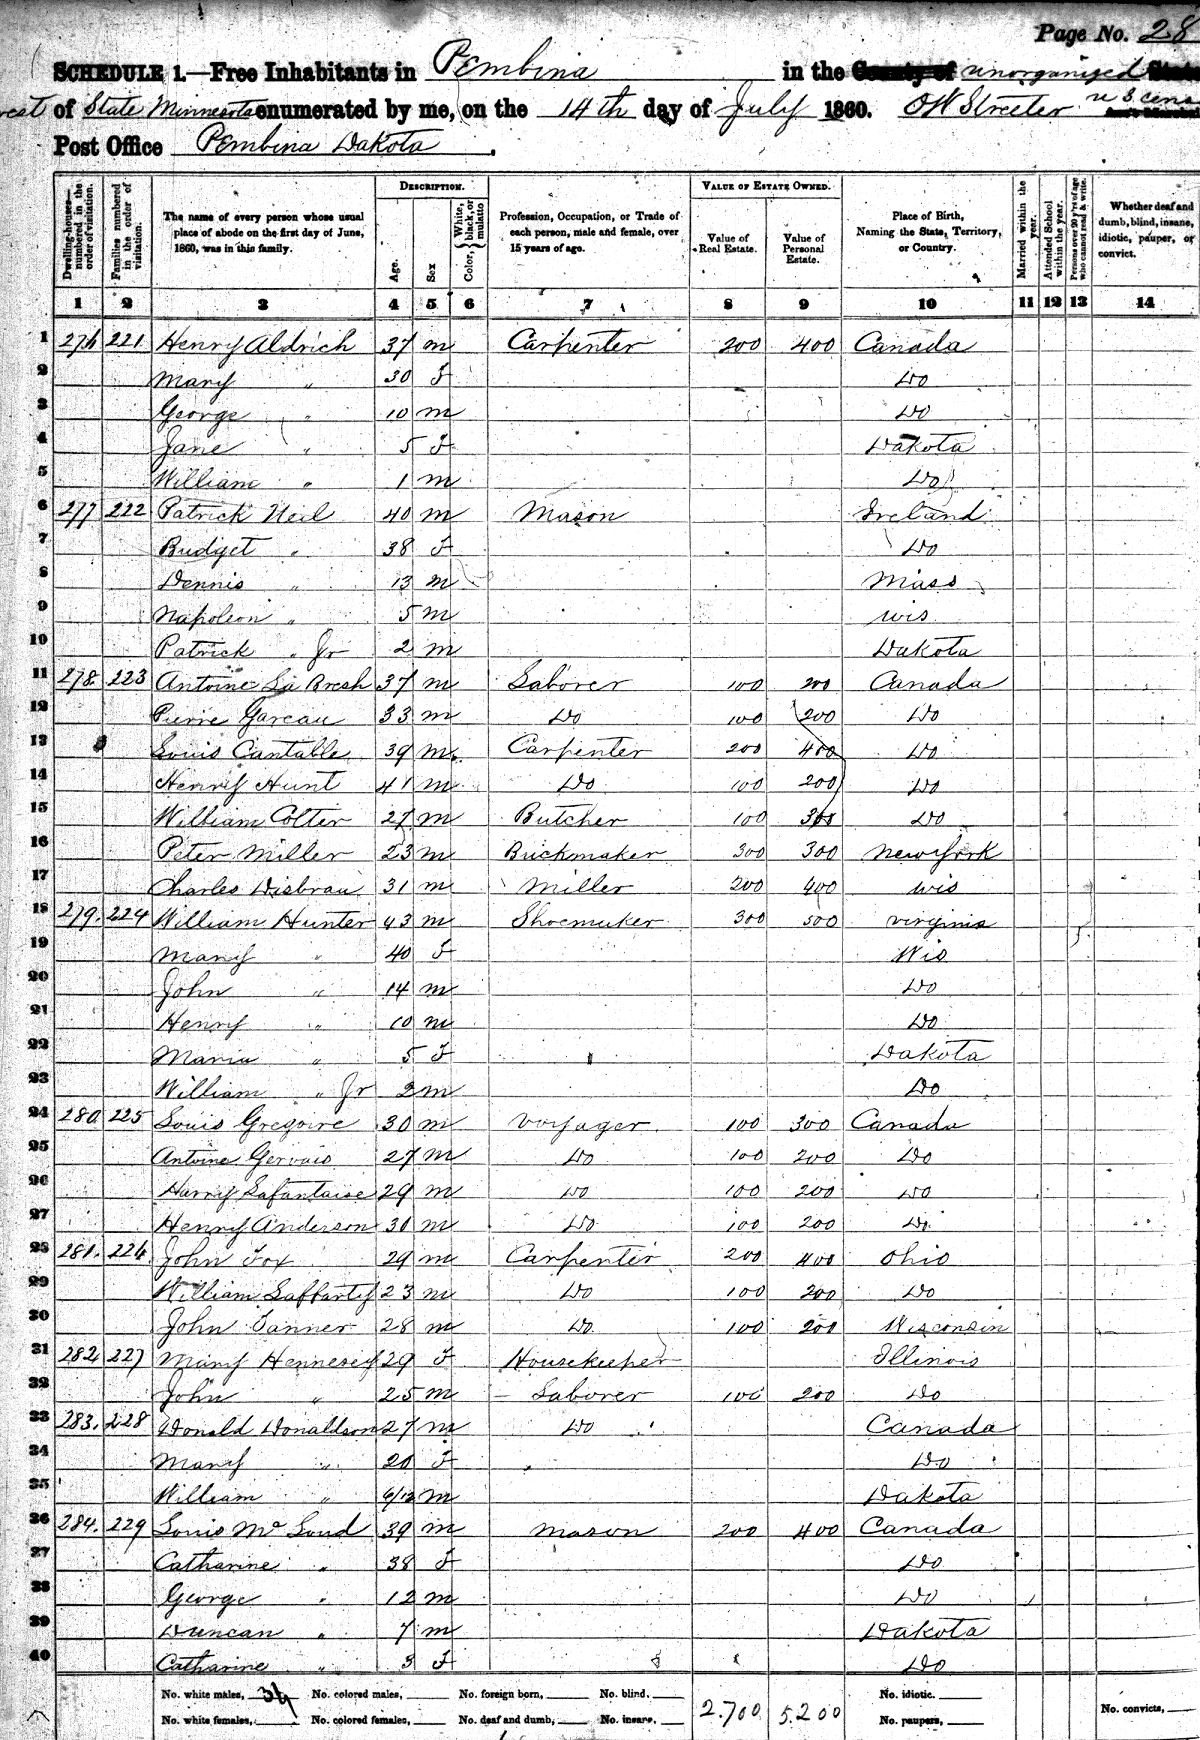 Page No. 28
SCHEDULE 1.—Free Inhabitants in Pembina in the County of unorganized State
of State Minnesota enumerated by me, on the 14th day of July 1860. OW Streeter U S cens
Post Office Pembina Dakota.
Dwelling-houses— numbered in the order of visitation. Families numbered in the order of visitation. The name of every person whose usual place of abode on the first day of June, 1860, was in this family. DESCRIPTION. Age. Sex Color, White, black, or mulatto Profession, Occupation, or Trade of each person, male and female, over 15 years of age. VALUE OF ESTATE OWNED. Value of Real Estate. Value of Personal Estate. Place of Birth, Naming the State, Territory, or Country. Married within the year. Attended School within the year. Persons over 20 y'rs of age who cannot read & write. Whether deaf and dumb, blind, insane, idiotic, pauper, or convict.
1 2 3 4 5 6 7 8 9 10 11 12 13 14
1 276 221 Henry Aldrich 37 m Carpenter 200 400 Canada
2 Mary " 30 F Do
3 George " 10 m Do
4 Jane " 5 F Dakota
5 William " 1 m Do
6 277 222 Patrick Neil 40 m Mason Ireland
7 Bridget " 38 F Do
8 Dennis " 13 m Mass
9 Napoleon " 5 m Wis
10 Patrick " Jr 2 m Dakota
11 278. 223 Antoine La Bresh 37 m Laborer 100 200 Canada
12 Pierre Gareau 33 m Do 100 200 Do
13 Louis Cantable 39 m Carpenter 200 400 Do
14 Henry Hunt 41 m Do 100 200 Do
15 William Colter 27 m Butcher 100 300 Do
16 Peter Miller 23 m Brickmaker 300 300 New York
17 Charles Disbrau 31 m Miller 200 400 Wis
18 279. 224 William Hunter 43 m Shoemaker 300 500 Virginia
19 Mary " 40 F Wis
20 John " 14 m Do
21 Henry " 10 m Do
22 Maria " 5 F Dakota
23 William " Jr 2 m Do
24 280 225 Louis Gregoire 30 m Voyager 100 300 Canada
25 Antoine Gervais 27 m Do 100 200 Do
26 Harry Lafantaise 29 m Do 100 200 Do
27 Henry Anderson 30 m Do 100 200 Do
28 281. 226 John Fox 29 m Carpenter 200 400 Ohio
29 William Laffarty 23 m Do 100 200 Do
30 John Tanner 28 m Do 100 200 Wisconsin
31 282 227 Mary Hennesey 29 F Housekeeper Illinois
32 John " 25 m Laborer 100 200 Do
33 283. 228 Donald Donaldson 27 m Do Canada
34 Mary " 20 F Do
35 William " 6/12 m Dakota
36 284. 229 Louis McLoud 39 m Mason 200 400 Canada
37 Catharine " 38 F Do
38 George " 12 m Do
39 Duncan " 7 m Dakota
40 Catharine " 3 F Do
No. white males, No. colored males, No. foreign born, No. blind, 2.700 5.200 No. idiotic.
No. white females, No. colored females, No. deaf and dumb, No. insane, No. paupers, No. convicts,